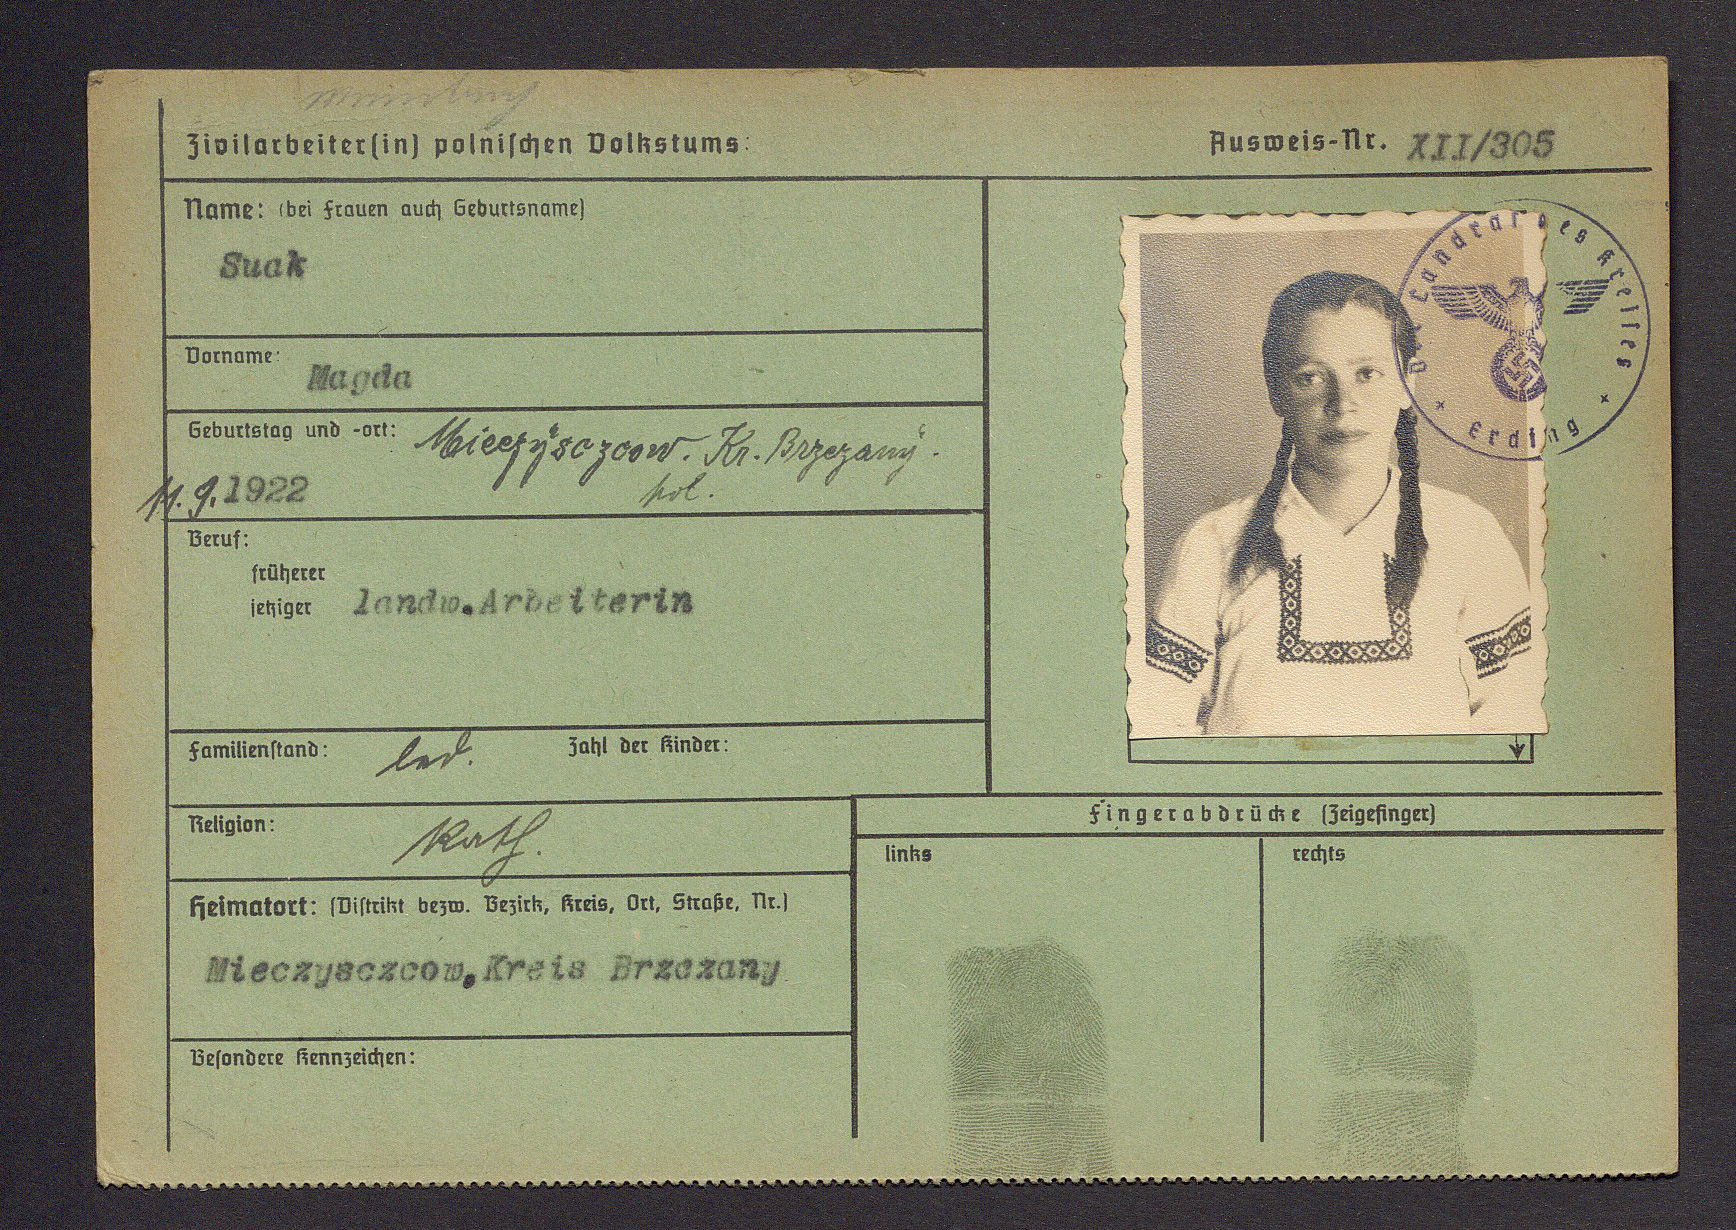 Zivilarbeiter(in) polnischen Volkstums:
Ausweis-Nr. XII/305
Name: (bei Frauen auch Geburtsname)
Suak
Vorname:
Magda
Geburtstag und -ort: Mieczysczcow. Kr. Brzezany.
11.9.1922 pol.
Beruf:
früherer
jetziger landw.Arbeiterin
Familienstand: led. Zahl der Kinder:
Religion: Kath.
Heimatort: (Distrikt bezw. Bezirk, Kreis, Ort, Straße, Nr.)
Mieczysczcow.Kreis Brzezany
Besondere Kennzeichen:
Der Landrat des Kreises
* Erding *
Fingerabdrücke (Zeigefinger)
links
rechts